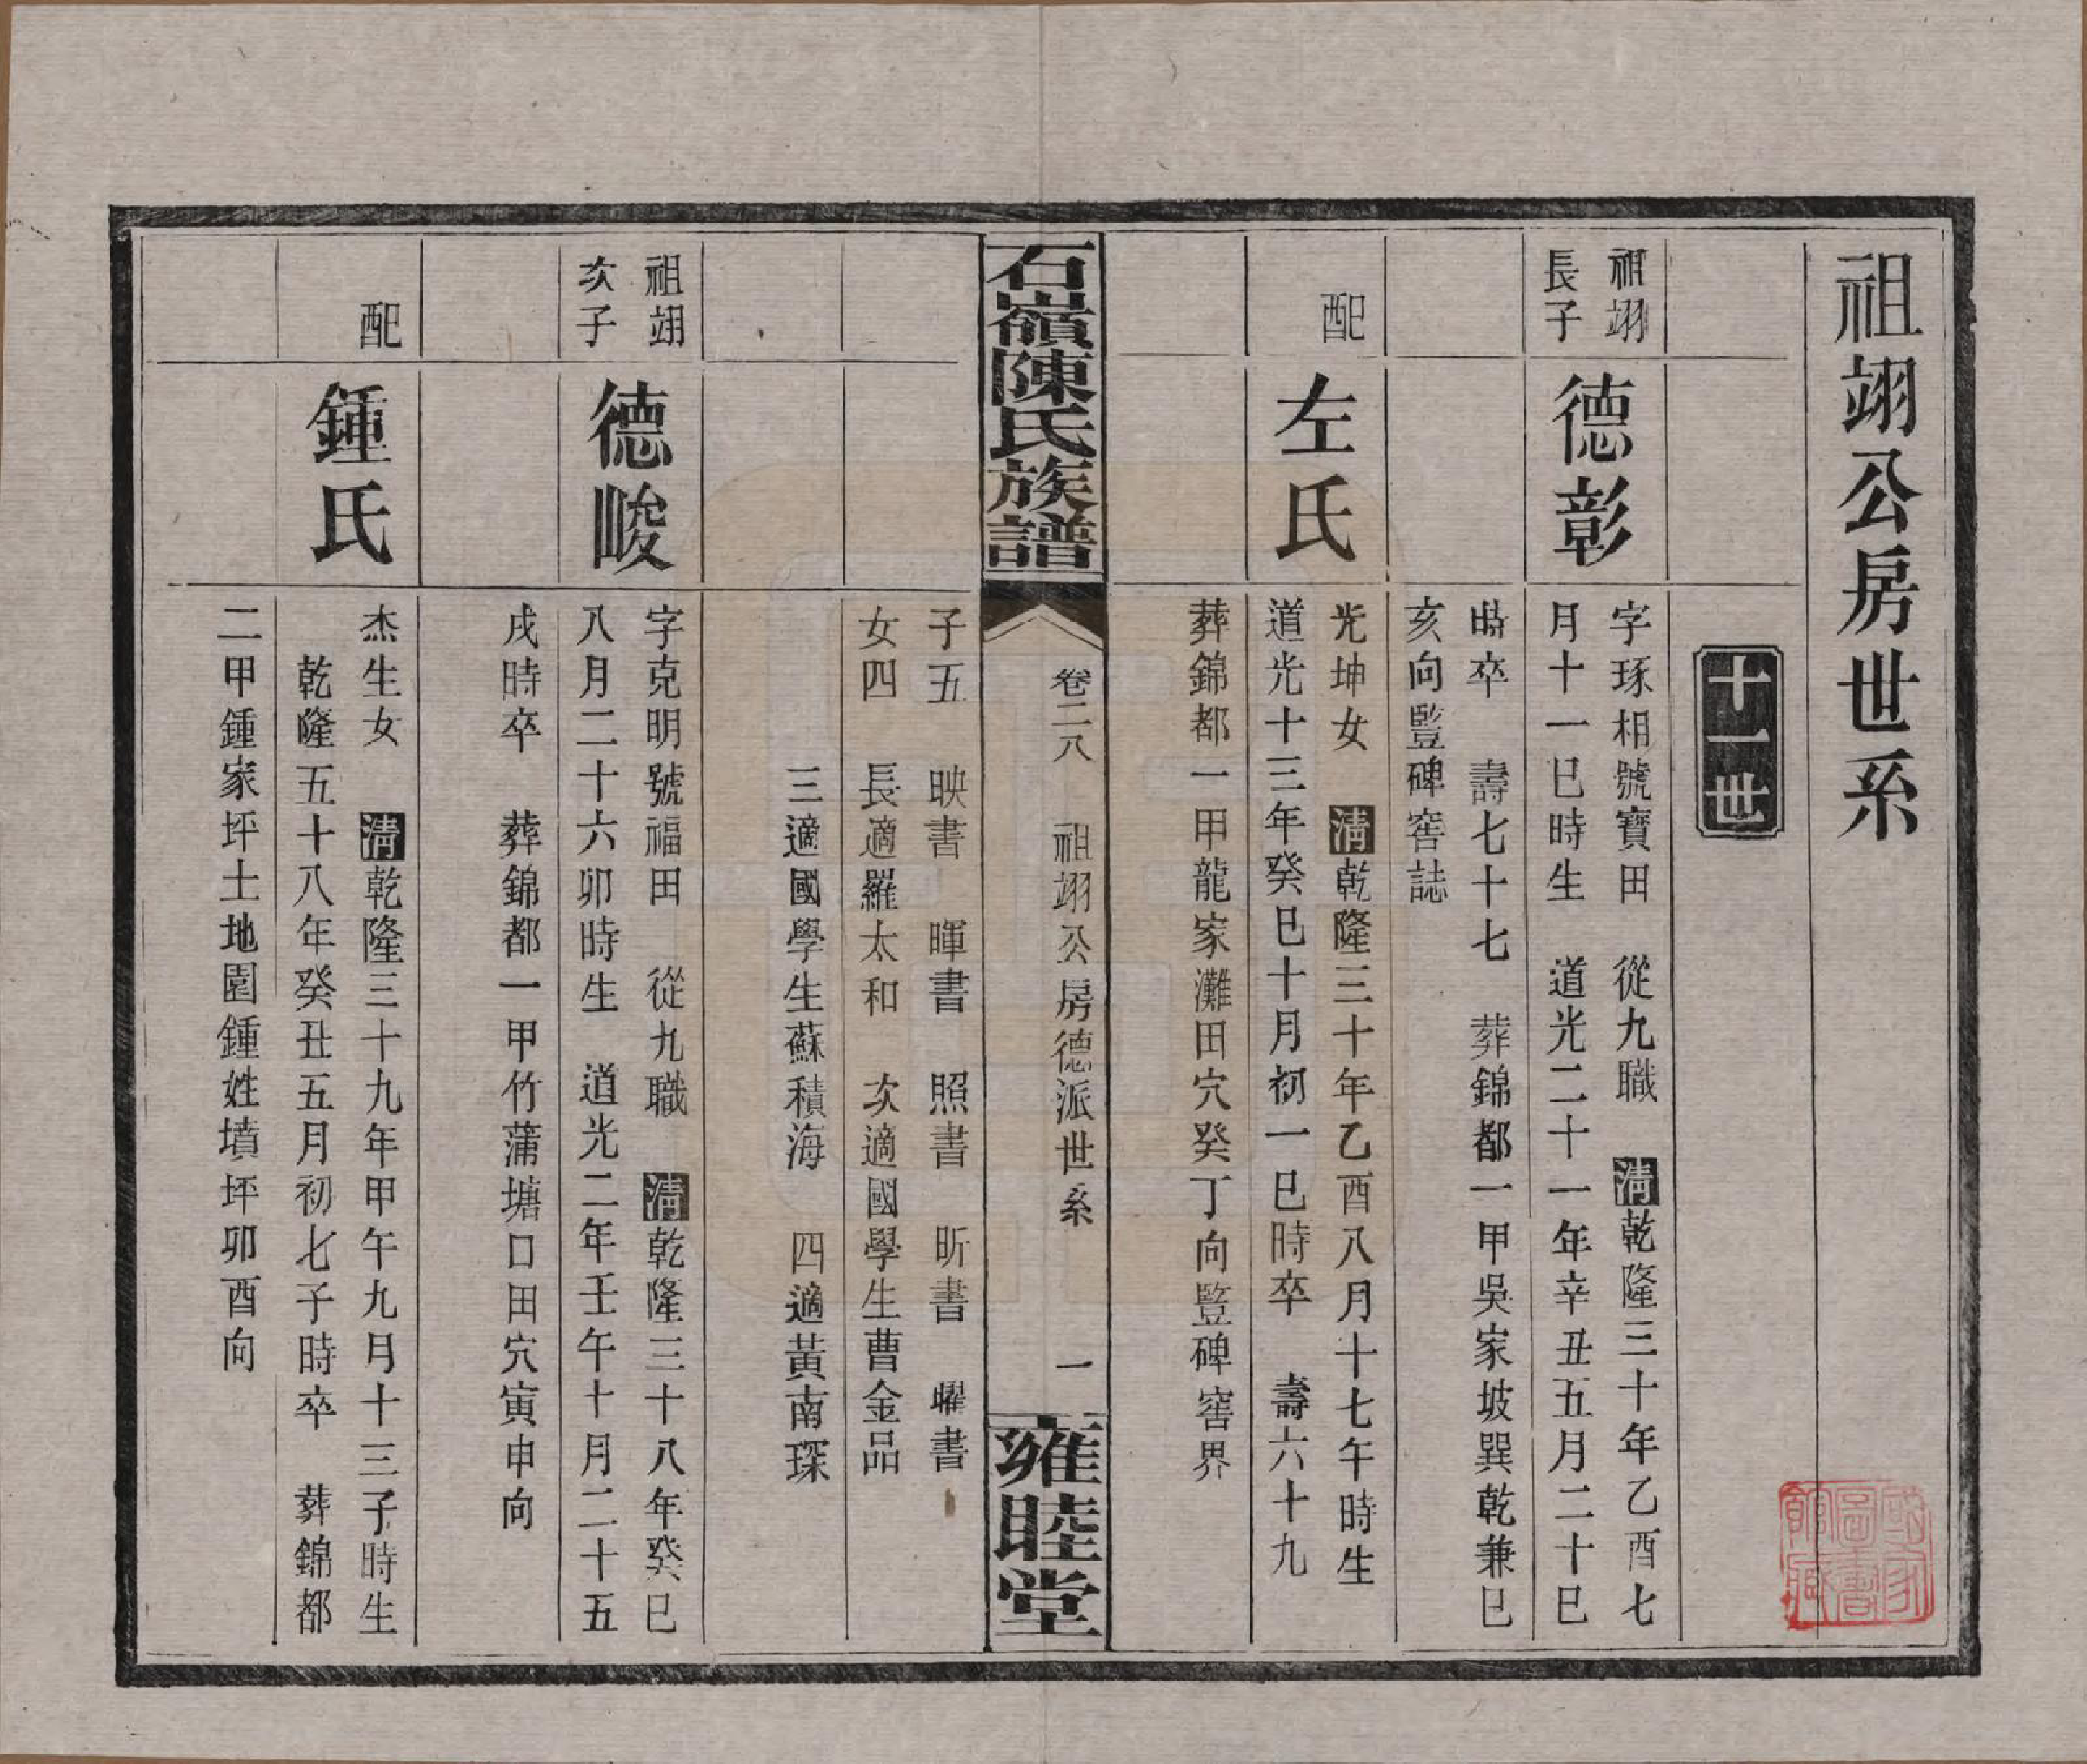 祖翊公房世系
十一世
祖翊
長子
德彰
字琢相號寶田 從九職 清乾隆三十年乙酉七
月十一巳時生 道光二十一年辛丑五月二十巳
時卒 壽七十七 葬錦都一甲吳家坡巽乾兼巳
亥向豎碑窖誌
配
左氏
光坤女 清乾隆三十年乙酉八月十七午時生
道光十三年癸巳十月初一巳時卒 壽六十九
葬錦都一甲龍家灘田穴癸丁向豎碑窖界
石嶺陳氏族譜
卷二八 祖翊公房德派世系 一
雍睦堂
子五 映書 暉書 照書 昕書 曜書
女四 長適羅太和 次適國學生曹金品
三適國學生蘇積海 四適黃南琛
祖翊
次子
德畯
字克明號福田 從九職 清乾隆三十八年癸巳
八月二十六卯時生 道光二年壬午十月二十五
戌時卒 葬錦都一甲竹蒲塘口田穴寅申向
配
鍾氏
杰生女 清乾隆三十九年甲午九月十三子時生
乾隆五十八年癸丑五月初七子時卒 葬錦都
二甲鍾家坪土地園鍾姓墳坪卯酉向
國家
圖書
館藏